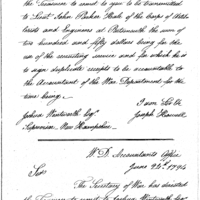 the Treasurer to remit to you to be transmitted
to Lieut John Parker Hale of the Corps of Artil
lerists and Engineers at Portsmouth the sum of
two hundred and fifty dollars being for the
use of the recruiting service and for which he is
to sign duplicate receipts to be accountable to
the Accountant of the War Department for the
time being.
I am Sir &c
Joshua Wentworth Esqr. Joseph Howell
Supervisor New Hampshire
W. D. Accountants Office
June 24th 1794
Sir
The Secretary of War has directed
the Treasurer to remit to Joshua Wentworth Esqr